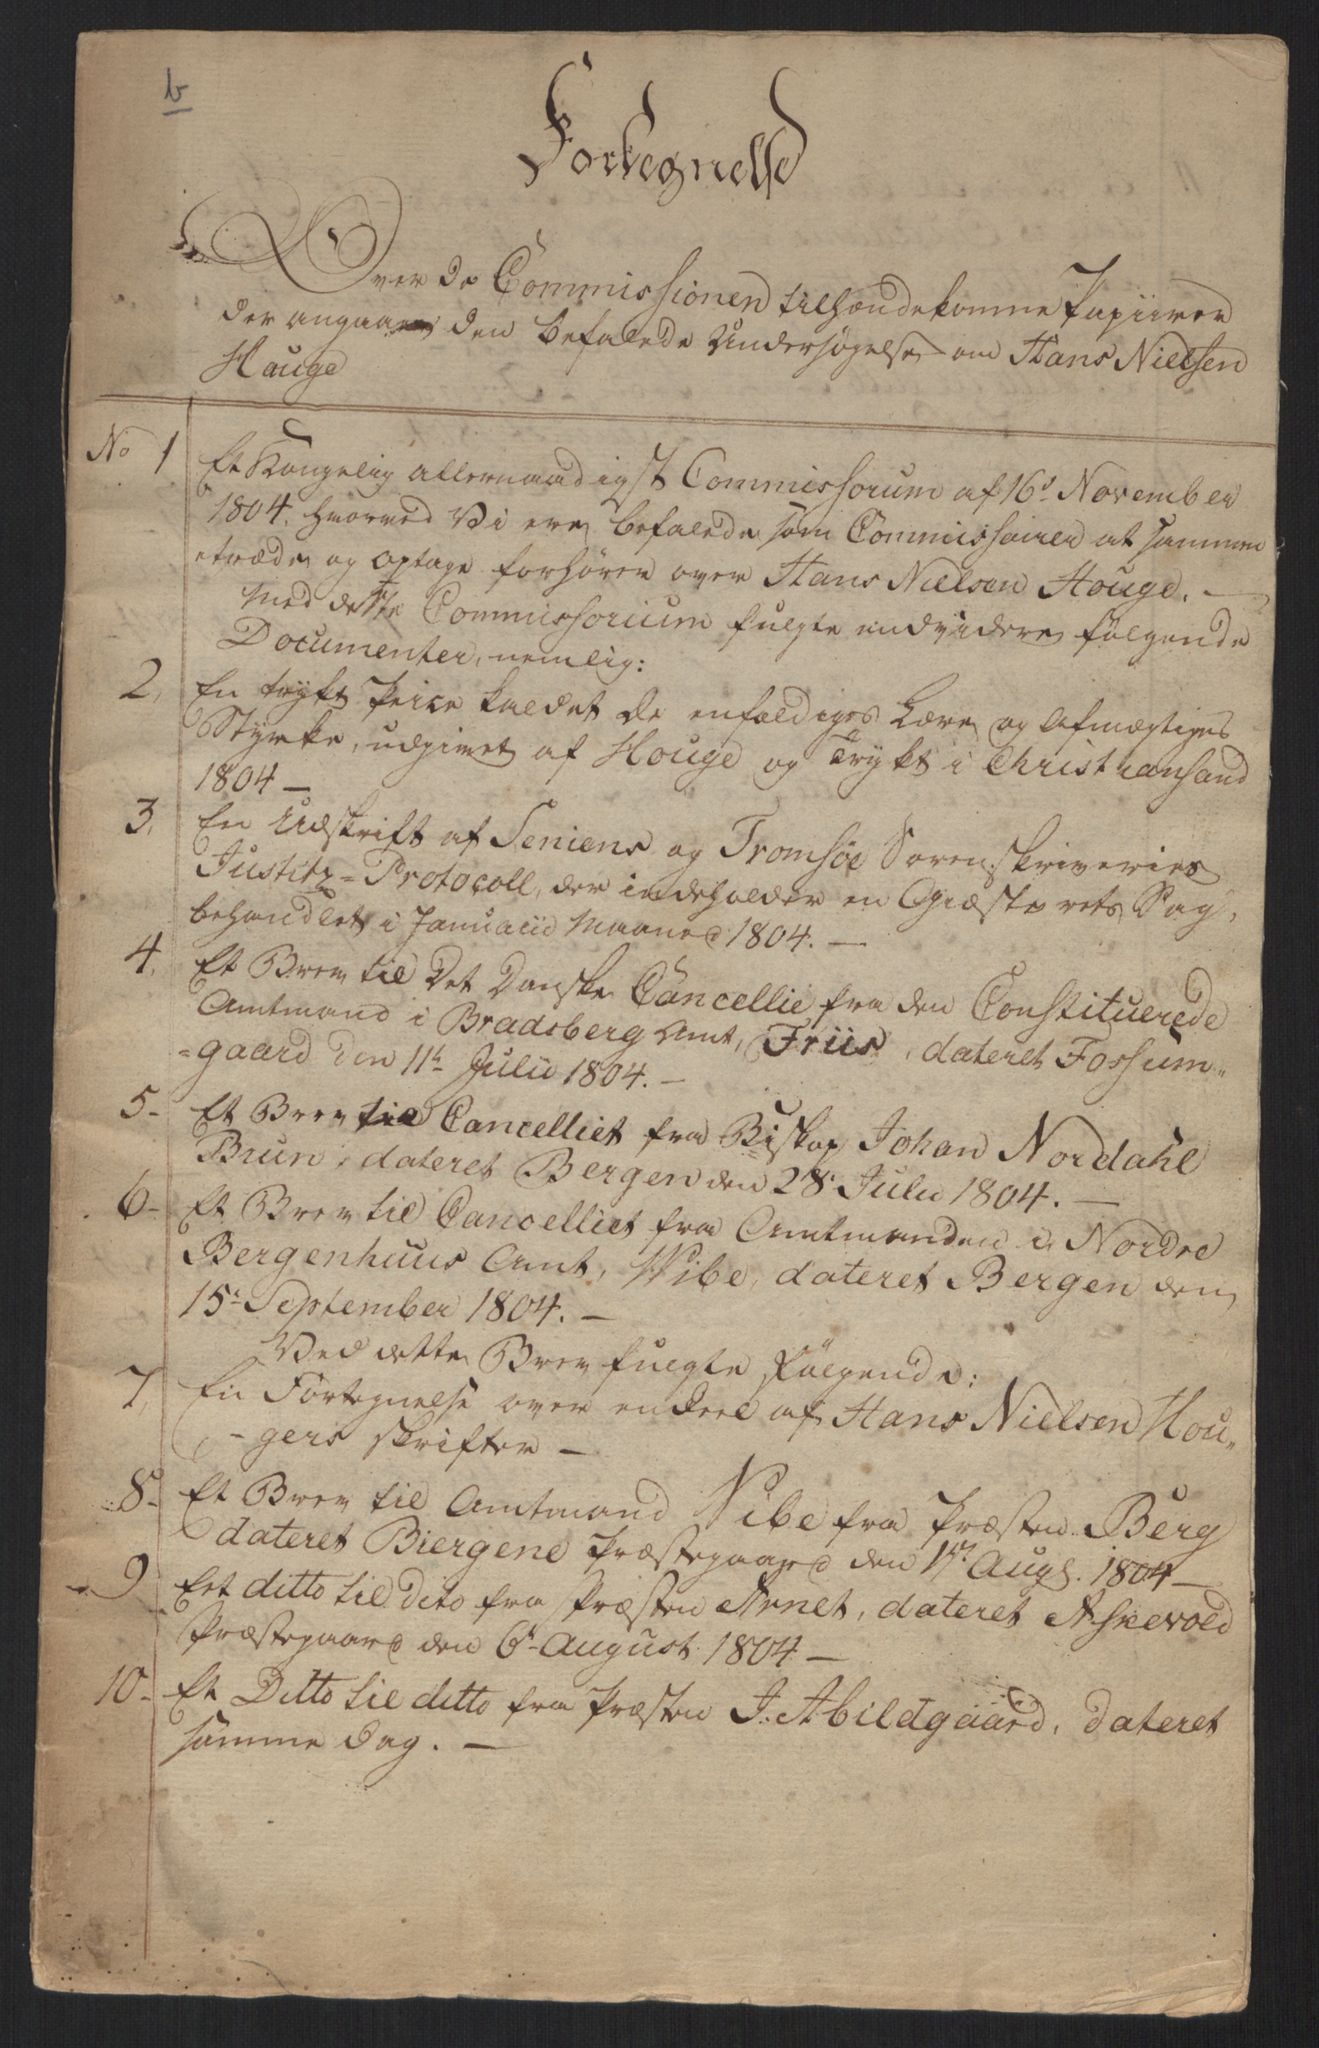 b
Fortegnelse
Over de Commissionen tilhændekomne Papiirer
der angaaer den befalede Undersøgelse om Hans Nielsen
Hauge
No 1 Et Kongelig allernaadigst Commissorium af 16d November
1804. hvorved Vi ere befalede som Commissairer at sammen
træde og optage forhører over Hans Nielsen Houge. —
Med dette Commissorium fulgte endvidere følgende
Documenter, nemlig:
2, En trykt Peice kaldet de enfoldiges Lære og Afmægtiges
Styrke, udgivet af Houge og Trykt i Christiansand
1804 —
3, En Udskrift af Seniens og Tromsøe Sorenskriveries
Justitz=Protocoll, der indeholder en Giæsterets Sag,
behandlet i Januarii Maaned 1804. —
4, Et Brev til Det Danske Cancellie fra den Constituerede
Amtmand i Bradsberg Amt, Friis, dateret Fossum-
=gaard den 11te Julii 1804. —
5- Et Brev til Cancelliet fra Biskop Johan Nordahl
Brun, dateret Bergen den 28d Julii 1804. —
6- Et Brev til Cancelliet fra Amtmanden i Nordre
Bergenhuus Amt, Wibe, dateret Bergen den
15d September 1804. —
Ved dette Brev fulgte Følgende:
7, En Fortegnelse over endeel af Hans Nielsen Hou-
-gers skrifter —
8- Et Brev til Amtmand Vibe fra Præsten Berg
dateret Biergene Præstegaard den Aug. 1804 —
9 Eet ditto til dito fra Præsten Arnet, dateret Askevold
Præstegaard den 6d August 1804 —
10- Et Ditto til ditto fra Præsten J. Abildgaard, dateret
samme Dag. —